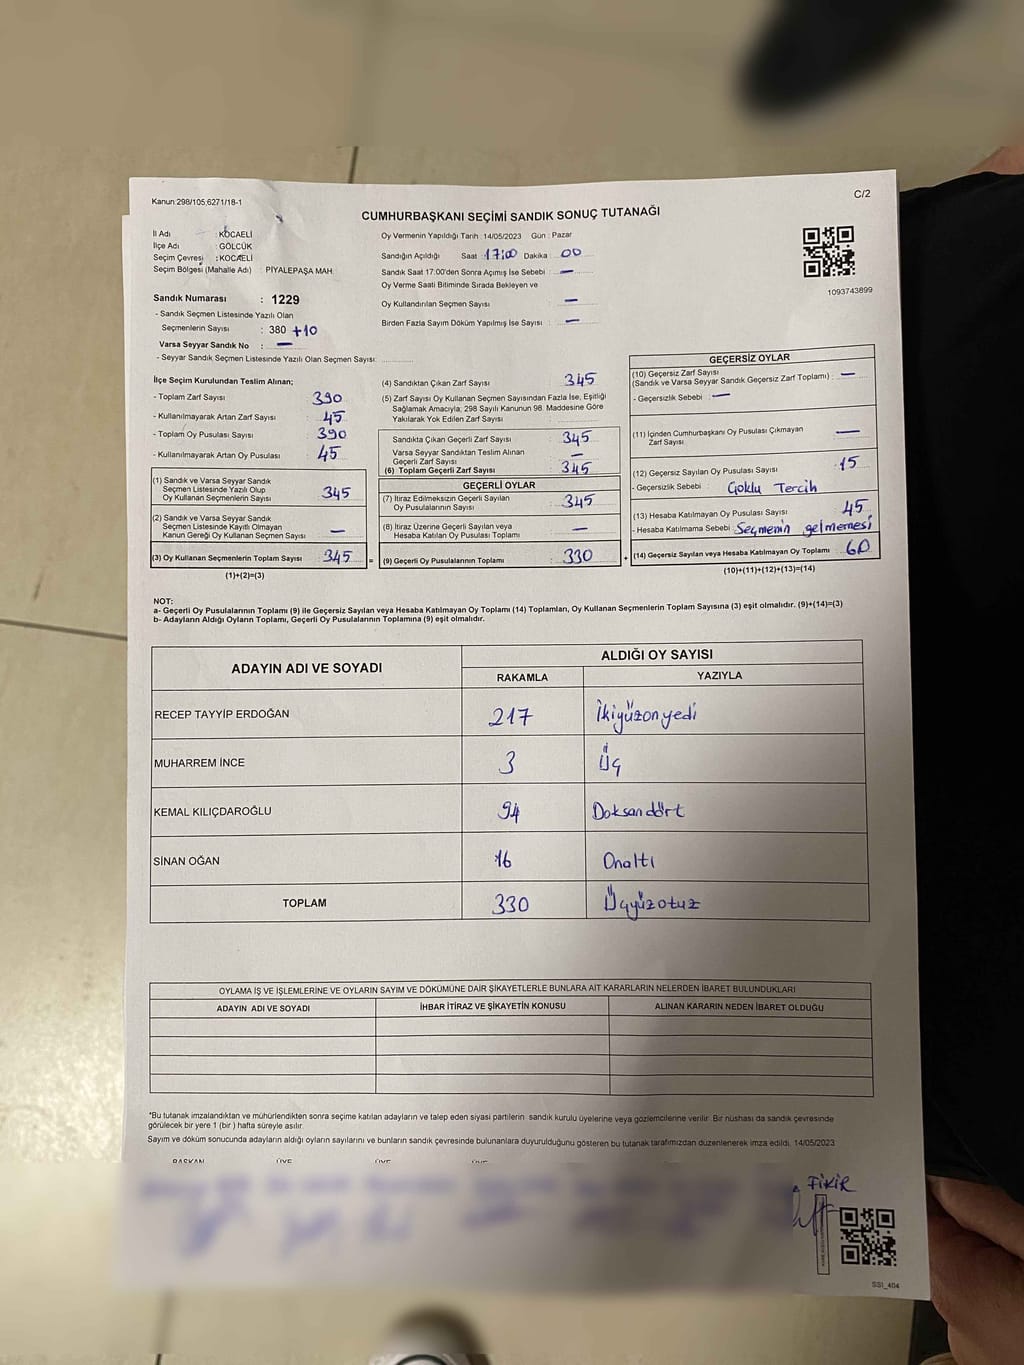 Kanun:298/105,6271/18-1
C/2
CUMHURBAŞKANI SEÇİMİ SANDIK SONUÇ TUTANAĞI
İl Adı : KOCAELİ
İlçe Adı : GÖLCÜK
Seçim Çevresi : KOCAELİ
Seçim Bölgesi (Mahalle Adı) : PİYALEPAŞA MAH.
Sandık Numarası : 1229
- Sandık Seçmen Listesinde Yazılı Olan
Seçmenlerin Sayısı : 380 +10
Varsa Seyyar Sandık No : —
- Seyyar Sandık Seçmen Listesinde Yazılı Olan Seçmen Sayısı:
Oy Vermenin Yapıldığı Tarih :14/05/2023 Gün : Pazar
Sandığın Açıldığı Saat 17:00 Dakika : 00
Sandık Saat 17:00'den Sonra Açımış İse Sebebi : —
Oy Verme Saati Bitiminde Sırada Bekleyen ve
Oy Kullandırılan Seçmen Sayısı : —
Birden Fazla Sayım Döküm Yapılmış İse Sayısı : —
1093743899
İlçe Seçim Kurulundan Teslim Alınan;
- Toplam Zarf Sayısı : 390
- Kullanılmayarak Artan Zarf Sayısı : 45
- Toplam Oy Pusulası Sayısı : 390
- Kullanılmayarak Artan Oy Pusulası : 45
(1) Sandık ve Varsa Seyyar Sandık
Seçmen Listesinde Yazılı Olup
Oy Kullanan Seçmenlerin Sayısı : 345
(2) Sandık ve Varsa Seyyar Sandık
Seçmen Listesinde Kayıtlı Olmayan
Kanun Gereği Oy Kullanan Seçmen Sayısı : —
(3) Oy Kullanan Seçmenlerin Toplam Sayısı : 345 =
(1)+(2)=(3)
(4) Sandıktan Çıkan Zarf Sayısı : 345
(5) Zarf Sayısı Oy Kullanan Seçmen Sayısından Fazla İse, Eşitliği
Sağlamak Amacıyla; 298 Sayılı Kanunun 98. Maddesine Göre
Yakılarak Yok Edilen Zarf Sayısı :
Sandıkta Çıkan Geçerli Zarf Sayısı : 345
Varsa Seyyar Sandıktan Teslim Alınan
Geçerli Zarf Sayısı : —
(6) Toplam Geçerli Zarf Sayısı : 345
GEÇERLİ OYLAR
(7) İtiraz Edilmeksizin Geçerli Sayılan
Oy Pusulalarının Sayısı : 345
(8) İtiraz Üzerine Geçerli Sayılan veya
Hesaba Katılan Oy Pusulası Toplamı : —
(9) Geçerli Oy Pusulalarının Toplamı : 330 +
GEÇERSİZ OYLAR
(10) Geçersiz Zarf Sayısı
(Sandık ve Varsa Seyyar Sandık Geçersiz Zarf Toplamı) : —
- Geçersizlik Sebebi : —
(11) İçinden Cumhurbaşkanı Oy Pusulası Çıkmayan
Zarf Sayısı : —
(12) Geçersiz Sayılan Oy Pusulası Sayısı : 15
- Geçersizlik Sebebi : Çoklu Tercih
(13) Hesaba Katılmayan Oy Pusulası Sayısı : 45
- Hesaba Katılmama Sebebi : Seçmenin gelmemesi
(14) Geçersiz Sayılan veya Hesaba Katılmayan Oy Toplamı : 60
(10)+(11)+(12)+(13)=(14)
NOT:
a- Geçerli Oy Pusulalarının Toplamı (9) ile Geçersiz Sayılan veya Hesaba Katılmayan Oy Toplamı (14) Toplamları, Oy Kullanan Seçmenlerin Toplam Sayısına (3) eşit olmalıdır. (9)+(14)=(3)
b- Adayların Aldığı Oyların Toplamı, Geçerli Oy Pusulalarının Toplamına (9) eşit olmalıdır.
ADAYIN ADI VE SOYADI ALDIĞI OY SAYISI
RAKAMLA YAZIYLA
RECEP TAYYİP ERDOĞAN 217 İkiyüzonyedi
MUHARREM İNCE 3 Üç
KEMAL KILIÇDAROĞLU 94 Doksandört
SİNAN OĞAN 16 Onaltı
TOPLAM 330 Üçyüzotuz
OYLAMA İŞ VE İŞLEMLERİNE VE OYLARIN SAYIM VE DÖKÜMÜNE DAİR ŞİKAYETLERLE BUNLARA AİT KARARLARIN NELERDEN İBARET BULUNDUKLARI
ADAYIN ADI VE SOYADI İHBAR İTİRAZ VE ŞİKAYETİN KONUSU ALINAN KARARIN NEDEN İBARET OLDUĞU
*Bu tutanak imzalandıktan ve mühürlendikten sonra seçime katılan adayların ve talep eden siyasi partilerin sandık kurulu üyelerine veya gözlemcilerine verilir. Bir nüshası da sandık çevresinde
görülecek bir yere 1 (bir ) hafta süreyle asılır.
Sayım ve döküm sonucunda adayların aldığı oyların sayılarını ve bunların sandık çevresinde bulunanlara duyurulduğunu gösteren bu tutanak tarafımızdan düzenlenerek imza edildi. 14/05/2023
BAŞKAN ÜYE ÜYE ÜYE
FİKİR
SSI_404